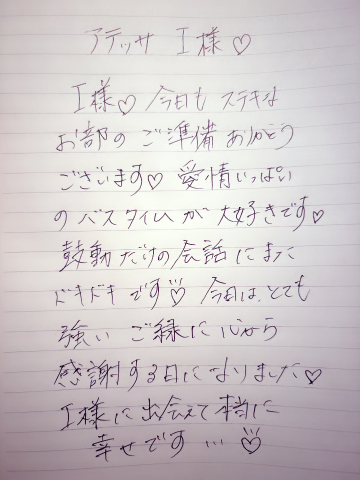 アテッサ I様♡
I様♡ 今日も ステキな
お部のご準備ありがとう
ございます♡ 愛情いっぱい
のバスタイムが大好きです♡
鼓動だけの会話にまた
ドキドキです♡ 今日は、とても
強いご縁に心から
感謝する日になりました♡
I様に出会えて本当に
幸せです…♡